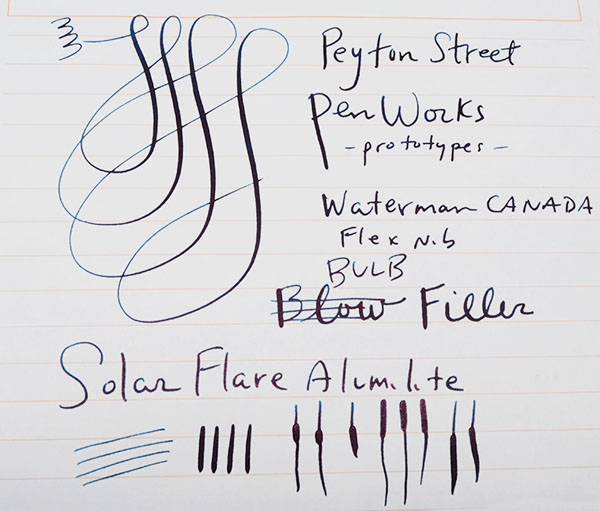 Peyton Street
Pen Works
- prototypes -
Waterman CANADA
Flex Nib
BULB
Blow Filler
Solar Flare Alumilite